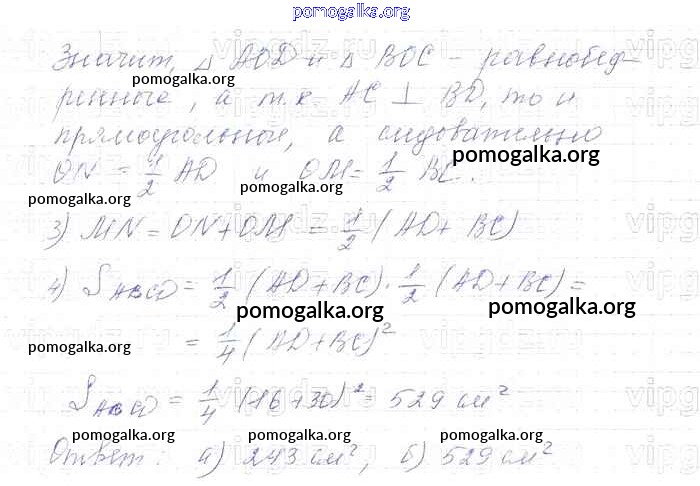 pomogalka.org
Значит, △ AOD и △ BOC – равнобед-
pomogalka.org
ренные, а т.к. AC ⊥ BD, то и
прямоугольные, а следовательно
pomogalka.org
ON = 1/2 AD и OM = 1/2 BC.
pomogalka.org pomogalka.org
3) MN = ON + OM = 1/2 (AD + BC)
4) S ABCD = 1/2 (AD + BC) · 1/2 (AD + BC) =
pomogalka.org pomogalka.org
= 1/4 (AD + BC)²
pomogalka.org
S ABCD = 1/4 (16 + 30)² = 529 см²
pomogalka.org pomogalka.org pomogalka.org
Ответ: а) 243 см², б) 529 см²